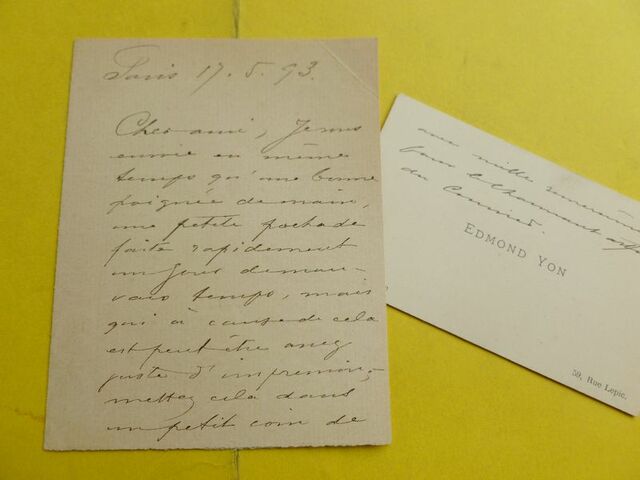 Paris 17.5.93.
Cher ami, Je vous
envoie en même
temps qu'une bonne
poignée de main,
une petite pochade
faite rapidement
un jour de mau-
vais temps, mais
qui à cause de cela
est peut être assez
juste d'impression,-
mettez cela dans
un petit coin de
avec mille
pour le charmant
du Courrier.
EDMOND YON
59, Rue Lepic.